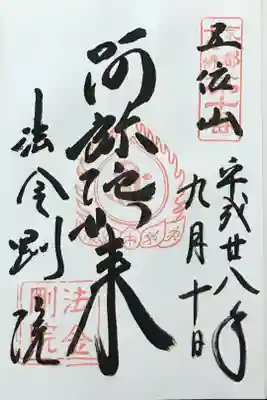 五位山
平成廿八年
九月十日
阿弥陀如来
法金剛院
法金
剛院